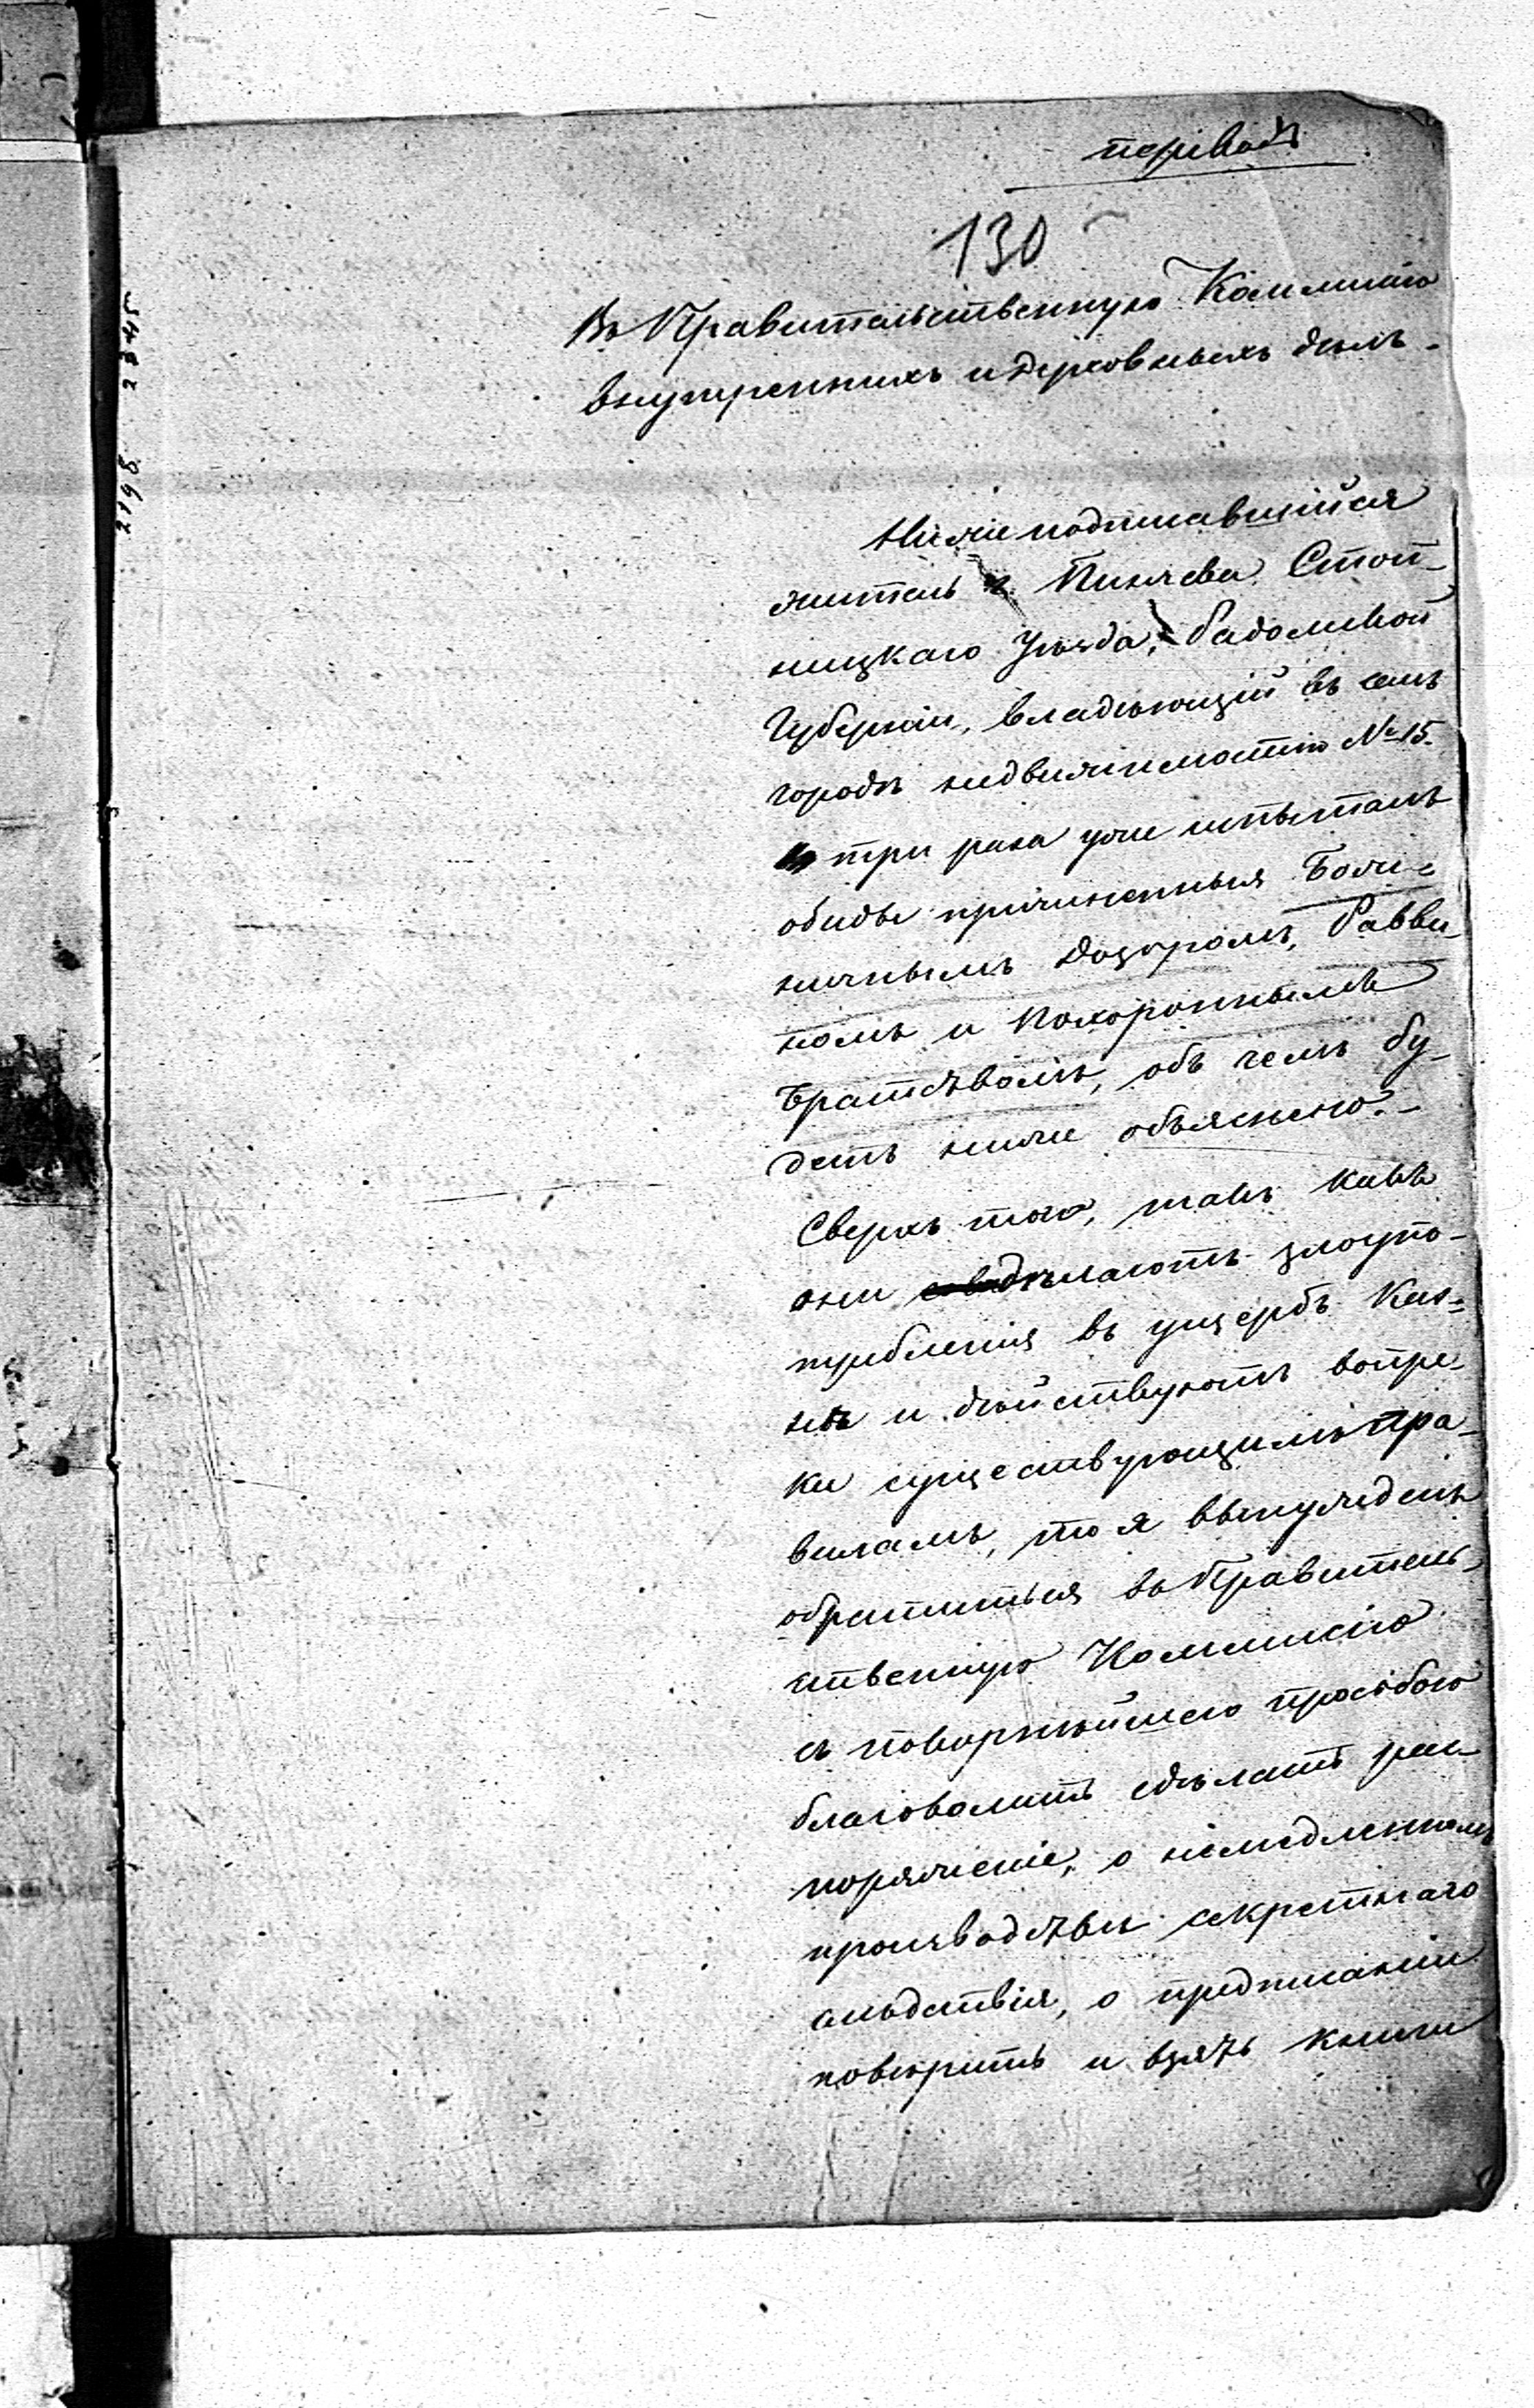 переводъ
130
Въ Правительственную Коммисію
внутреннихъ и духовныхъ дѣлъ.
Нижеподписавшійся
житель г. Пинчева Стоп-
ницкаго Уѣзда, Радомской
Губерніи, владѣющій въ семъ
городѣ недвижимостію № 15.
три раза уже испыталъ
обиды причиненныя Божни-
ничнымъ Дозоромъ, Равви-
номъ и Похороннымъ
Братствомъ, объ чемъ бу-
детъ ниже объяснено.-
Сверхъ того, такъ какъ
они дѣлаютъ злоупо-
требленія въ ущербъ Каз-
нѣ и дѣйствуютъ вопре-
ки существующимъ пра-
виламъ, то я вынужденъ
обратиться въ Правитель-
ственную Коммисію
съ покорнѣйшею просьбою
благоволить сдѣлать рас-
поряженіе, о немедленномъ
производствѣ секретнаго
слѣдствія, о предписаніи
повѣрить и взять книги
2198 2345